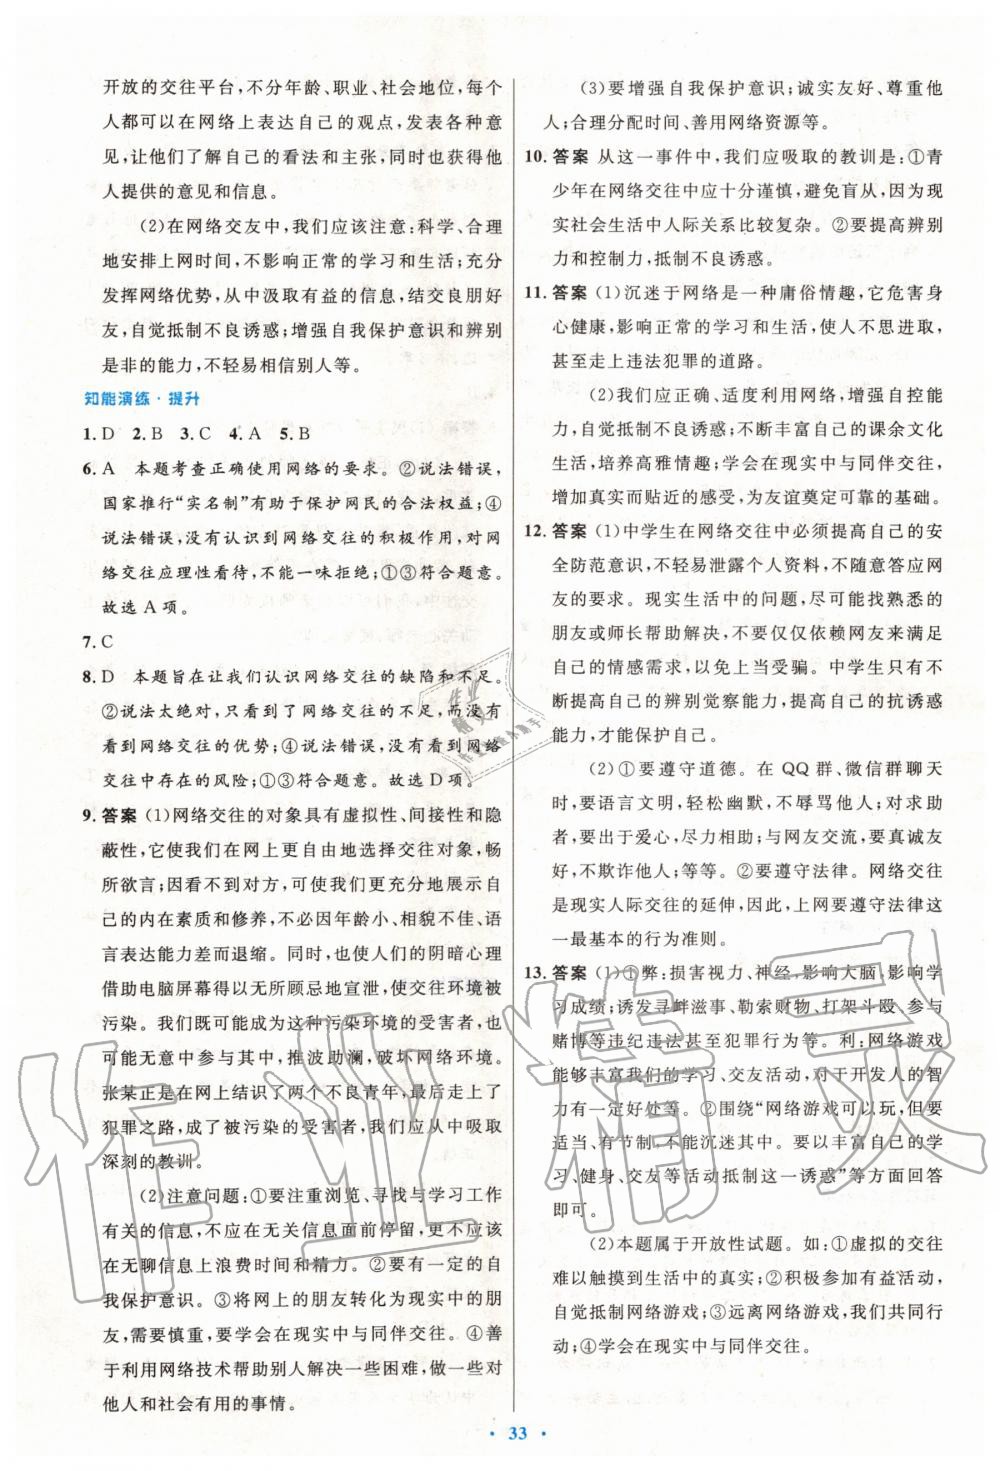 开放的交往平台,不分年龄、职业、社会地位,每个
人都可以在网络上表达自己的观点,发表各种意
见,让他们了解自己的看法和主张,同时也获得他
人提供的意见和信息。
(2)在网络交友中,我们应该注意:科学、合理
地安排上网时间,不影响正常的学习和生活;充分
发挥网络优势,从中汲取有益的信息,结交良朋好
友,自觉抵制不良诱惑;增强自我保护意识和辨别
是非的能力,不轻易相信别人等。
知能演练·提升
1. D 2. B 3. C 4. A 5. B
6. A 本题考查正确使用网络的要求。②说法错误,
国家推行“实名制”有助于保护网民的合法权益;④
说法错误,没有认识到网络交往的积极作用,对网
络交往应理性看待,不能一味拒绝;①③符合题意。
故选A项。
7. C
8. D 本题旨在让我们认识网络交往的缺陷和不足。
②说法太绝对,只看到了网络交往的不足,而没有
看到网络交往的优势;④说法错误,没有看到网络
交往中存在的风险;①③符合题意。故选D项。
9. 答案 (1)网络交往的对象具有虚拟性、间接性和隐
蔽性,它使我们在网上更自由地选择交往对象,畅
所欲言;因看不到对方,可使我们更充分地展示自
己的内在素质和修养,不必因年龄小、相貌不佳、语
言表达能力差而退缩。同时,也使人们的阴暗心理
借助电脑屏幕得以无所顾忌地宣泄,使交往环境被
污染。我们既可能成为这种污染环境的受害者,也
可能无意中参与其中,推波助澜,破坏网络环境。
张某正是在网上结识了两个不良青年,最后走上了
犯罪之路,成了被污染的受害者,我们应从中吸取
深刻的教训。
(2)注意问题:①要注重浏览、寻找与学习工作
有关的信息,不应在无关信息面前停留,更不应该
在无聊信息上浪费时间和精力。②要有一定的自
我保护意识。③将网上的朋友转化为现实中的朋
友,需要慎重,要学会在现实中与同伴交往。④善
于利用网络技术帮助别人解决一些困难,做一些对
他人和社会有用的事情。
(3)要增强自我保护意识;诚实友好、尊重他
人;合理分配时间、善用网络资源等。
10. 答案 从这一事件中,我们应吸取的教训是:①青
少年在网络交往中应十分谨慎,避免盲从,因为现
实社会生活中人际关系比较复杂。②要提高辨别
力和控制力,抵制不良诱惑。
11. 答案 (1)沉迷于网络是一种庸俗情趣,它危害身
心健康,影响正常的学习和生活,使人不思进取,
甚至走上违法犯罪的道路。
(2)我们应正确、适度利用网络,增强自控能
力,自觉抵制不良诱惑;不断丰富自己的课余文化
生活,培养高雅情趣;学会在现实中与同伴交往,
增加真实而贴近的感受,为友谊奠定可靠的基础。
12. 答案 (1)中学生在网络交往中必须提高自己的安
全防范意识,不轻易泄露个人资料,不随意答应网
友的要求。现实生活中的问题,尽可能找熟悉的
朋友或师长帮助解决,不要仅仅依赖网友来满足
自己的情感需求,以免上当受骗。中学生只有不
断提高自己的辨别觉察能力,提高自己的抗诱惑
能力,才能保护自己。
(2)①要遵守道德。在QQ群、微信群聊天
时,要语言文明,轻松幽默,不辱骂他人;对求助
者,要出于爱心,尽力相助;与网友交流,要真诚友
好,不欺诈他人;等等。②要遵守法律。网络交往
是现实人际交往的延伸,因此,上网要遵守法律这
一最基本的行为准则。
13. 答案 (1)①弊:损害视力、神经,影响大脑,影响学
习成绩;诱发寻衅滋事、勒索财物、打架斗殴、参与
赌博等违纪违法甚至犯罪行为等。利:网络游戏
能够丰富我们的学习、交友活动,对于开发人的智
力有一定好处等。②围绕“网络游戏可以玩,但要
适当、有节制,不能沉迷其中。要以丰富自己的学
习、健身、交友等活动抵制这一诱惑”等方面回答
即可。
(2)本题属于开放性试题。如:①虚拟的交往
难以触摸到生活中的真实;②积极参加有益活动,
自觉抵制网络游戏;③远离网络游戏,我们共同行
动;④学会在现实中与同伴交往。
· 33 ·
作业精灵